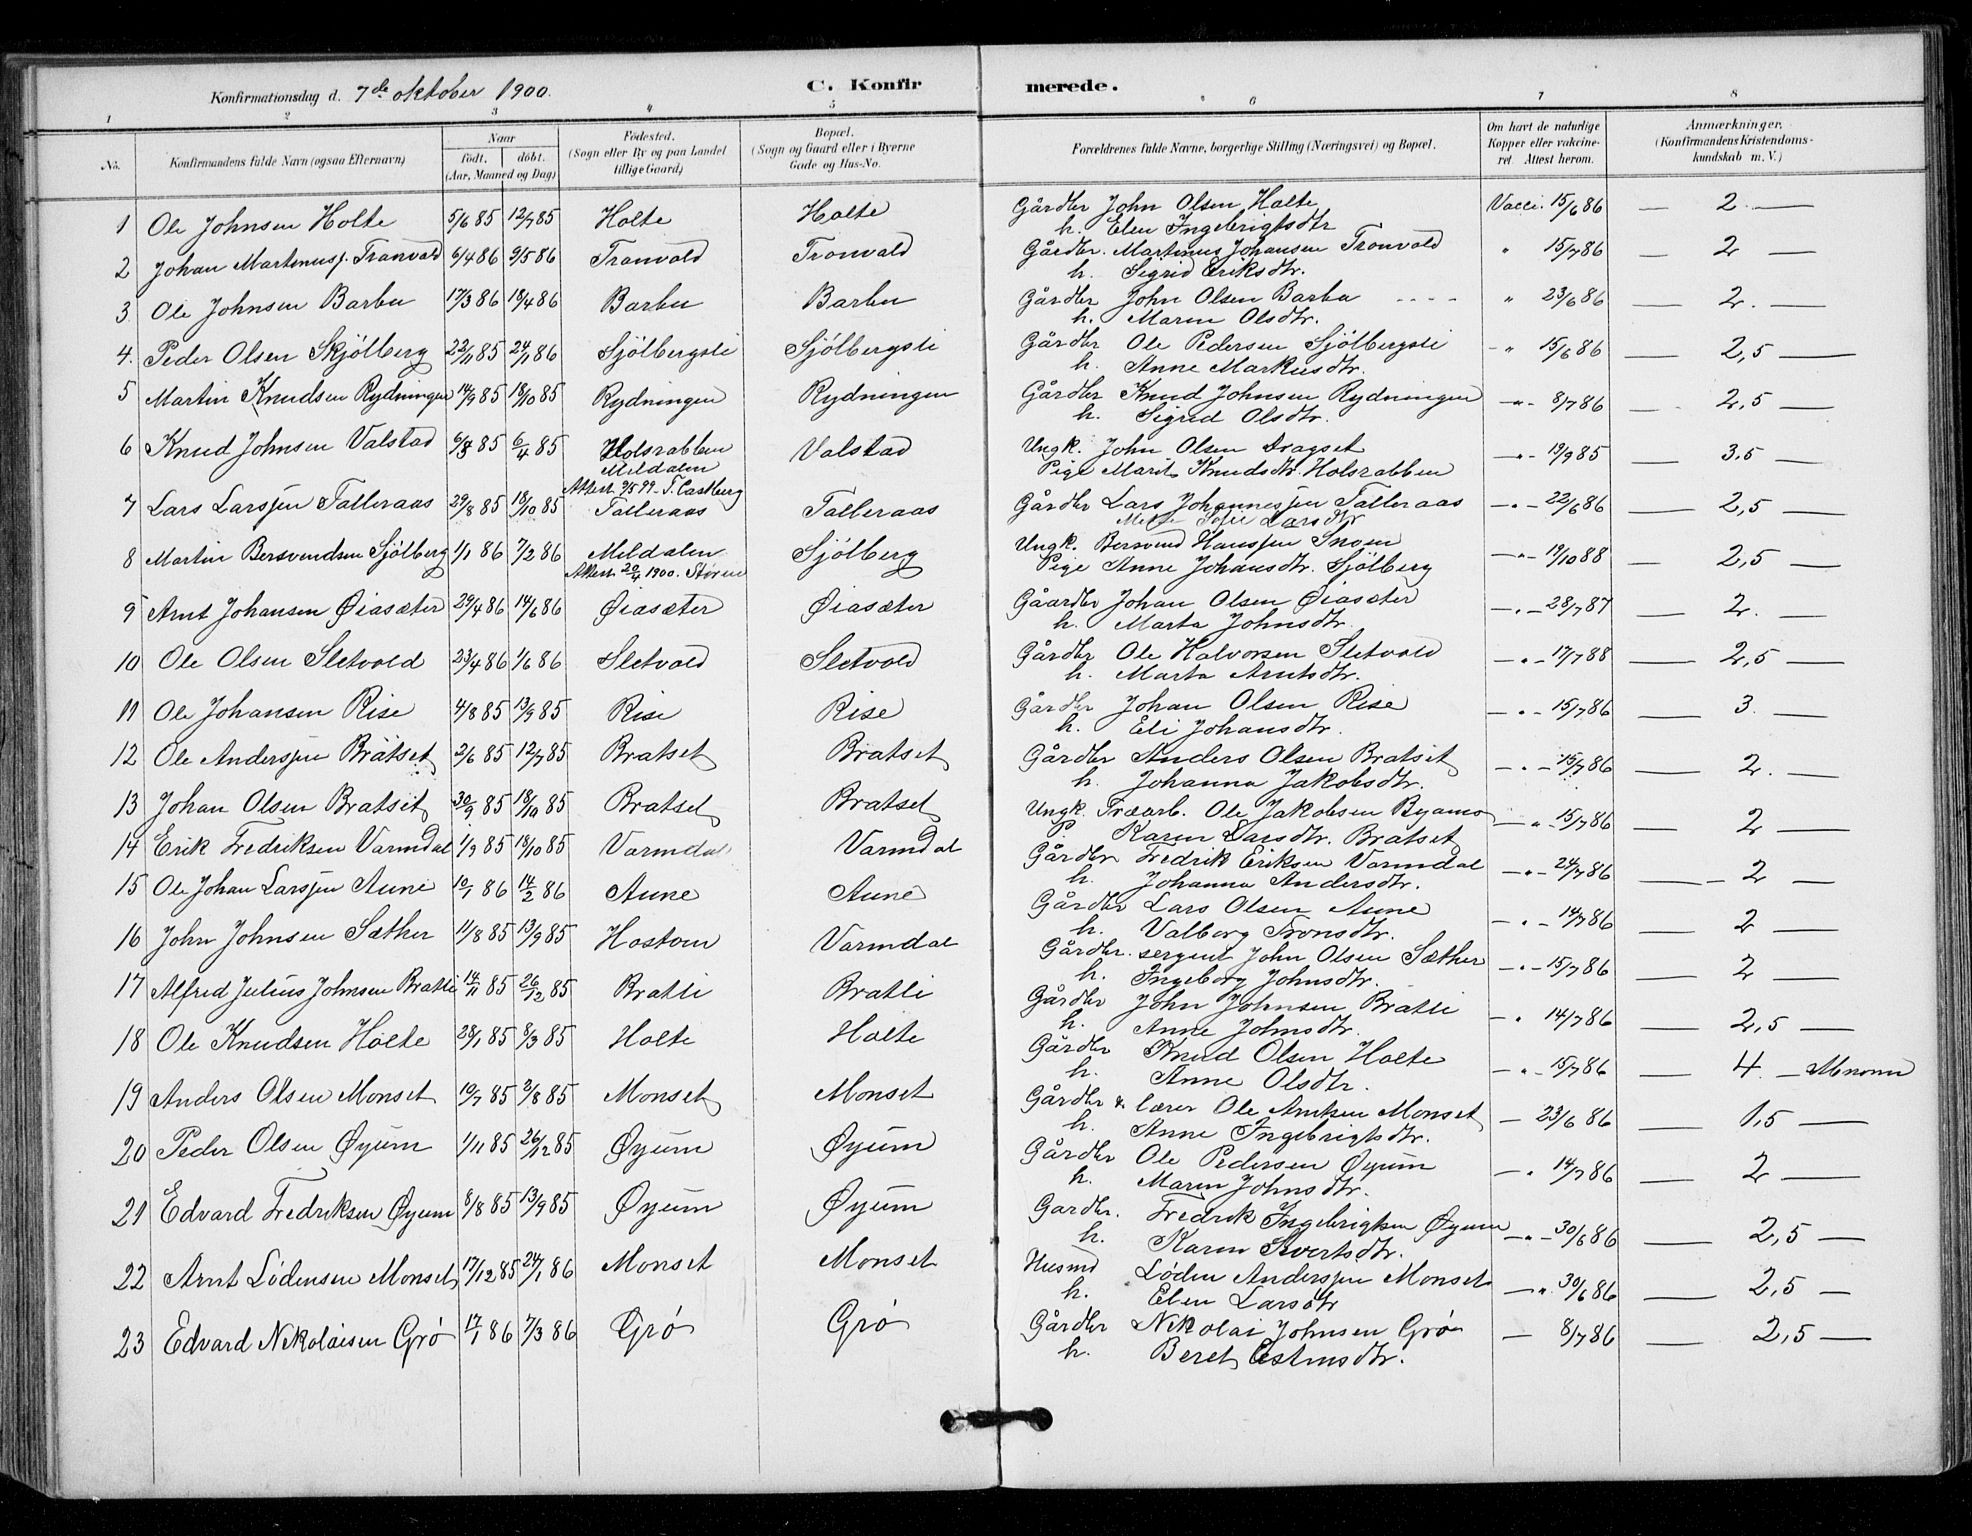 Konfirmationsdag d. 7de oktober 1900.
C. Konfirmerede.
1 2 3 4 5 6 7 8
No. Konfirmandens fulde Navn (ogsaa Efternavn) Naar født. døbt. (Aar, Maaned og Dag) Fødested. (Sogn eller By og paa Landet tillige Gaard) Bopæl. (Sogn og Gaard eller i Byerne Gade og Hus-No. Forældrenes fulde Navne, borgerlige Stilling (Næringsvei) og Bopæl. Om havt de naturlige Kopper eller vakcineret. Attest herom. Anmærkninger. (Konfirmandens Kristendomskundskab m. V.)
1 Ole Johnsen Holte 5/6 85 12/7 85 Holte Holte Gårdbr John Olsen Holte Vacci. 15/6 86 — 2. —
h. Elen Ingebrigtsdtr
2 Johan Martinusj. Tronvold 6/4 86 9/5 86 Tronvold Tronvold Gårdbr. Martinus Johansen Tronvold " 15/7 86 — 2 —
h. Sigrid Eriksdtr.
3 Ole Johnsen Barbu 17/3 86 18/4 86 Barbu Barbu Gårdbr John Olsen Barbu " 23/6 86 — 2. —
h. Maren Olsdtr.
4. Peder Olsen Skjølberg 22/11 85 24/1 86 Sjølbergsli Sjølbergsli Gårdbr Ole Pedersen Sjølbergsli - " 15/6 86 — 2,5 —
h. Anne Markusdtr.
5 Martin Knudsen Rydningen 14/9 85 18/10 85 Rydningen Rydningen Gårdbr Knud Johnsen Rydningen —"- 8/7 86 — 2,5 —
h. Sigrid Olsdtr.
6 Knud Johnsen Valstad 6/3 85 6/4 85 Holsrabben Valstad Ungk. John Olsen Dragset —"- 19/9 85 — 3,5 —
Meldalen Pige Marit Knudsdtr. Holsrabben
Attest 9/5 99 - T. Castberg
7 Lars Larsjen Talleraas 29/8 85 18/10 85 Talleraas Talleraas Gårdbr Lars Johannesjen Talleraas —"- 22/6 86 — 2,5 —
Sofie Larsdtr
8 Martin Bersvendsen Sjølberg 1/1 86 7/2 86 Meldalen Sjølberg Ungk. Bersvend Hansjen Snoen —"- 19/10 88 — 2,5 —
Attest 20/4 1900. Støren Pige Anne Johansdtr. Sjølberg
9 Arnt Johansen Øiasæter 29/4 86 14/6 86 Øiasæter Øiasæter Gåardbr Johan Olsen Øiasæter —"- 28/7 87 — 2. —
h. Marta Johnsdtr.
10 Ole Olsen Sletvold 23/4 86 1/6 86 Sletvold Sletvold Gårdbr Ole Halvorsen Sletvold —"- 17/7 88 — 2,5 —
h. Marta Arntsdtr.
11 Ole Johansen Rise 4/8 85 13/9 85 Rise Rise Gårdbr Johan Olsen Rise —"- 15/7 86 — 3. —
h. Eli Johansdtr.
12 Ole Andersjen Bratset 2/6 85 12/7 85 Bratset Bratset Gårdbr Anders Olsen Bratset —"- 15/7 86 — 2. —
h. Johanna Jakobsdtr.
13 Johan Olsen Bratset 30/9 85 18/10 85 Bratset Bratset Ungk. Træarb. Ole Jakobsen Byamo —"- 15/7 86 — 2 —
P. Karen Larsdtr. Bratset
14 Erik Fredriksen Varmdal 1/9 85 18/10 85 Varmdal Varmdal Gårdbr Fredrik Eriksen Varmdal —"- 24/7 86 — 2 —
h. Johanna Andersdtr.
15 Ole Johan Larsjen Aune 10/1 86 14/2 86 Aune Aune Gårdbr Lars Olsen Aune —"- 14/7 86 — 2 —
h. Valborg Tronsdtr.
16 John Johnsen Sæther 11/8 85 13/9 85 Hostom Varmdal Gårdbr. sergent John Olsen Sæther —"- 15/7 86 — 2 —
h. Ingeborg Johnsdtr.
17 Alfred Julius Johnsen Bratli 14/11 85 26/12 85 Bratli Bratli Gårdbr John Johnsen Bratli — " 14/7 86 — 2,5 —
h. Anne Johnsdtr.
18 Ole Knudsen Holte 28/1 85 8/3 85 Holte Holte Gårdbr Knud Olsen Holte —"- 15/7 86 — 4. —
h. Anne Olsdtr.
19 Anders Olsen Monset 19/7 85 2/8 85 Monset Monset Gårdbr & lærer Ole Arntsen Monset — 23/6 86 — 1,5 —
h. Anne Ingebrigtsdtr.
20 Peder Olsen Øyum 1/11 85 26/12 85 Øyum Øyum Gårdbr Ole Pedersen Øyum — " 14/7 86 — 2 —
h. Maren Johnsdtr.
21 Edvard Fredriksen Øyum 8/8 85 13/9 85 Øyum Øyum Gardbr. Fredrik Ingebrigtsen Øyum —"- 30/6 86 — 2,5 —
h. Karen Sivertsdtr.
22 Arnt Lødensen Monset 17/12 85 24/1 86 Monset Monset Husmd Løden Andersjen Monset —"- 30/6 86 — 2,5 —
h. Elen Larsdtr
23 Edvard Nikolaisen Grø 17/1 86 7/3 86 Grø Grø Gårdbr Nikolai Johnsen Grø — 8/7 86 — 2,5 —
h. Beret Estensdtr.